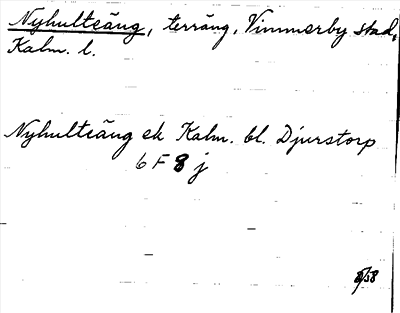 Nyhulteäng, terräng, Vimmerby stad,
Kalm. l.
Nyhulteäng ek Kalm. bl. Djurstorp
6 F 8 j
8/58